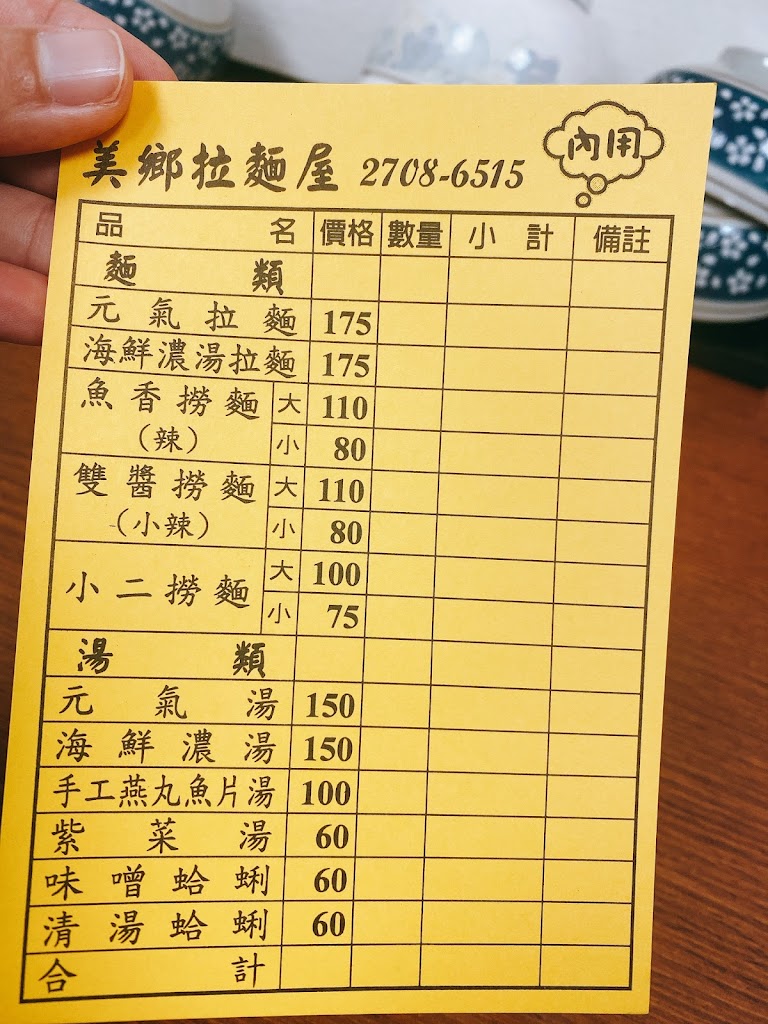 美鄉拉麵屋 2708-6515 內用
品名 價格 數量 小計 備註
麵類
元氣拉麵 175
海鮮濃湯拉麵 175
魚香撈麵 大 110
(辣) 小 80
雙醬撈麵 大 110
(小辣) 小 80
小二撈麵 大 100
小 75
湯類
元氣湯 150
海鮮濃湯 150
手工燕丸魚片湯 100
紫菜湯 60
味噌蛤蜊 60
清湯蛤蜊 60
合計